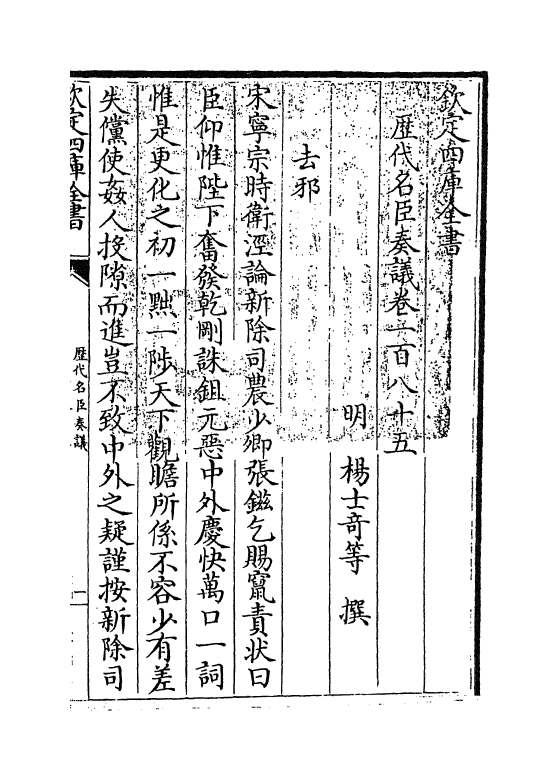 欽定四庫全書
歷代名臣奏議卷一百八十五
明 楊士竒等 撰
去邪
宋寧宗時衛涇論新除司農少卿張鎡乞賜竄責状曰
臣仰惟陛下奮發乾剛誅鉏元惡中外慶快萬口一詞
惟是更化之初一黜一陟天下觀瞻所係不容少有差
失儻使姦人投隙而進豈不致中外之疑謹按新除司
欽定四庫全書
歷代名臣奏議
一